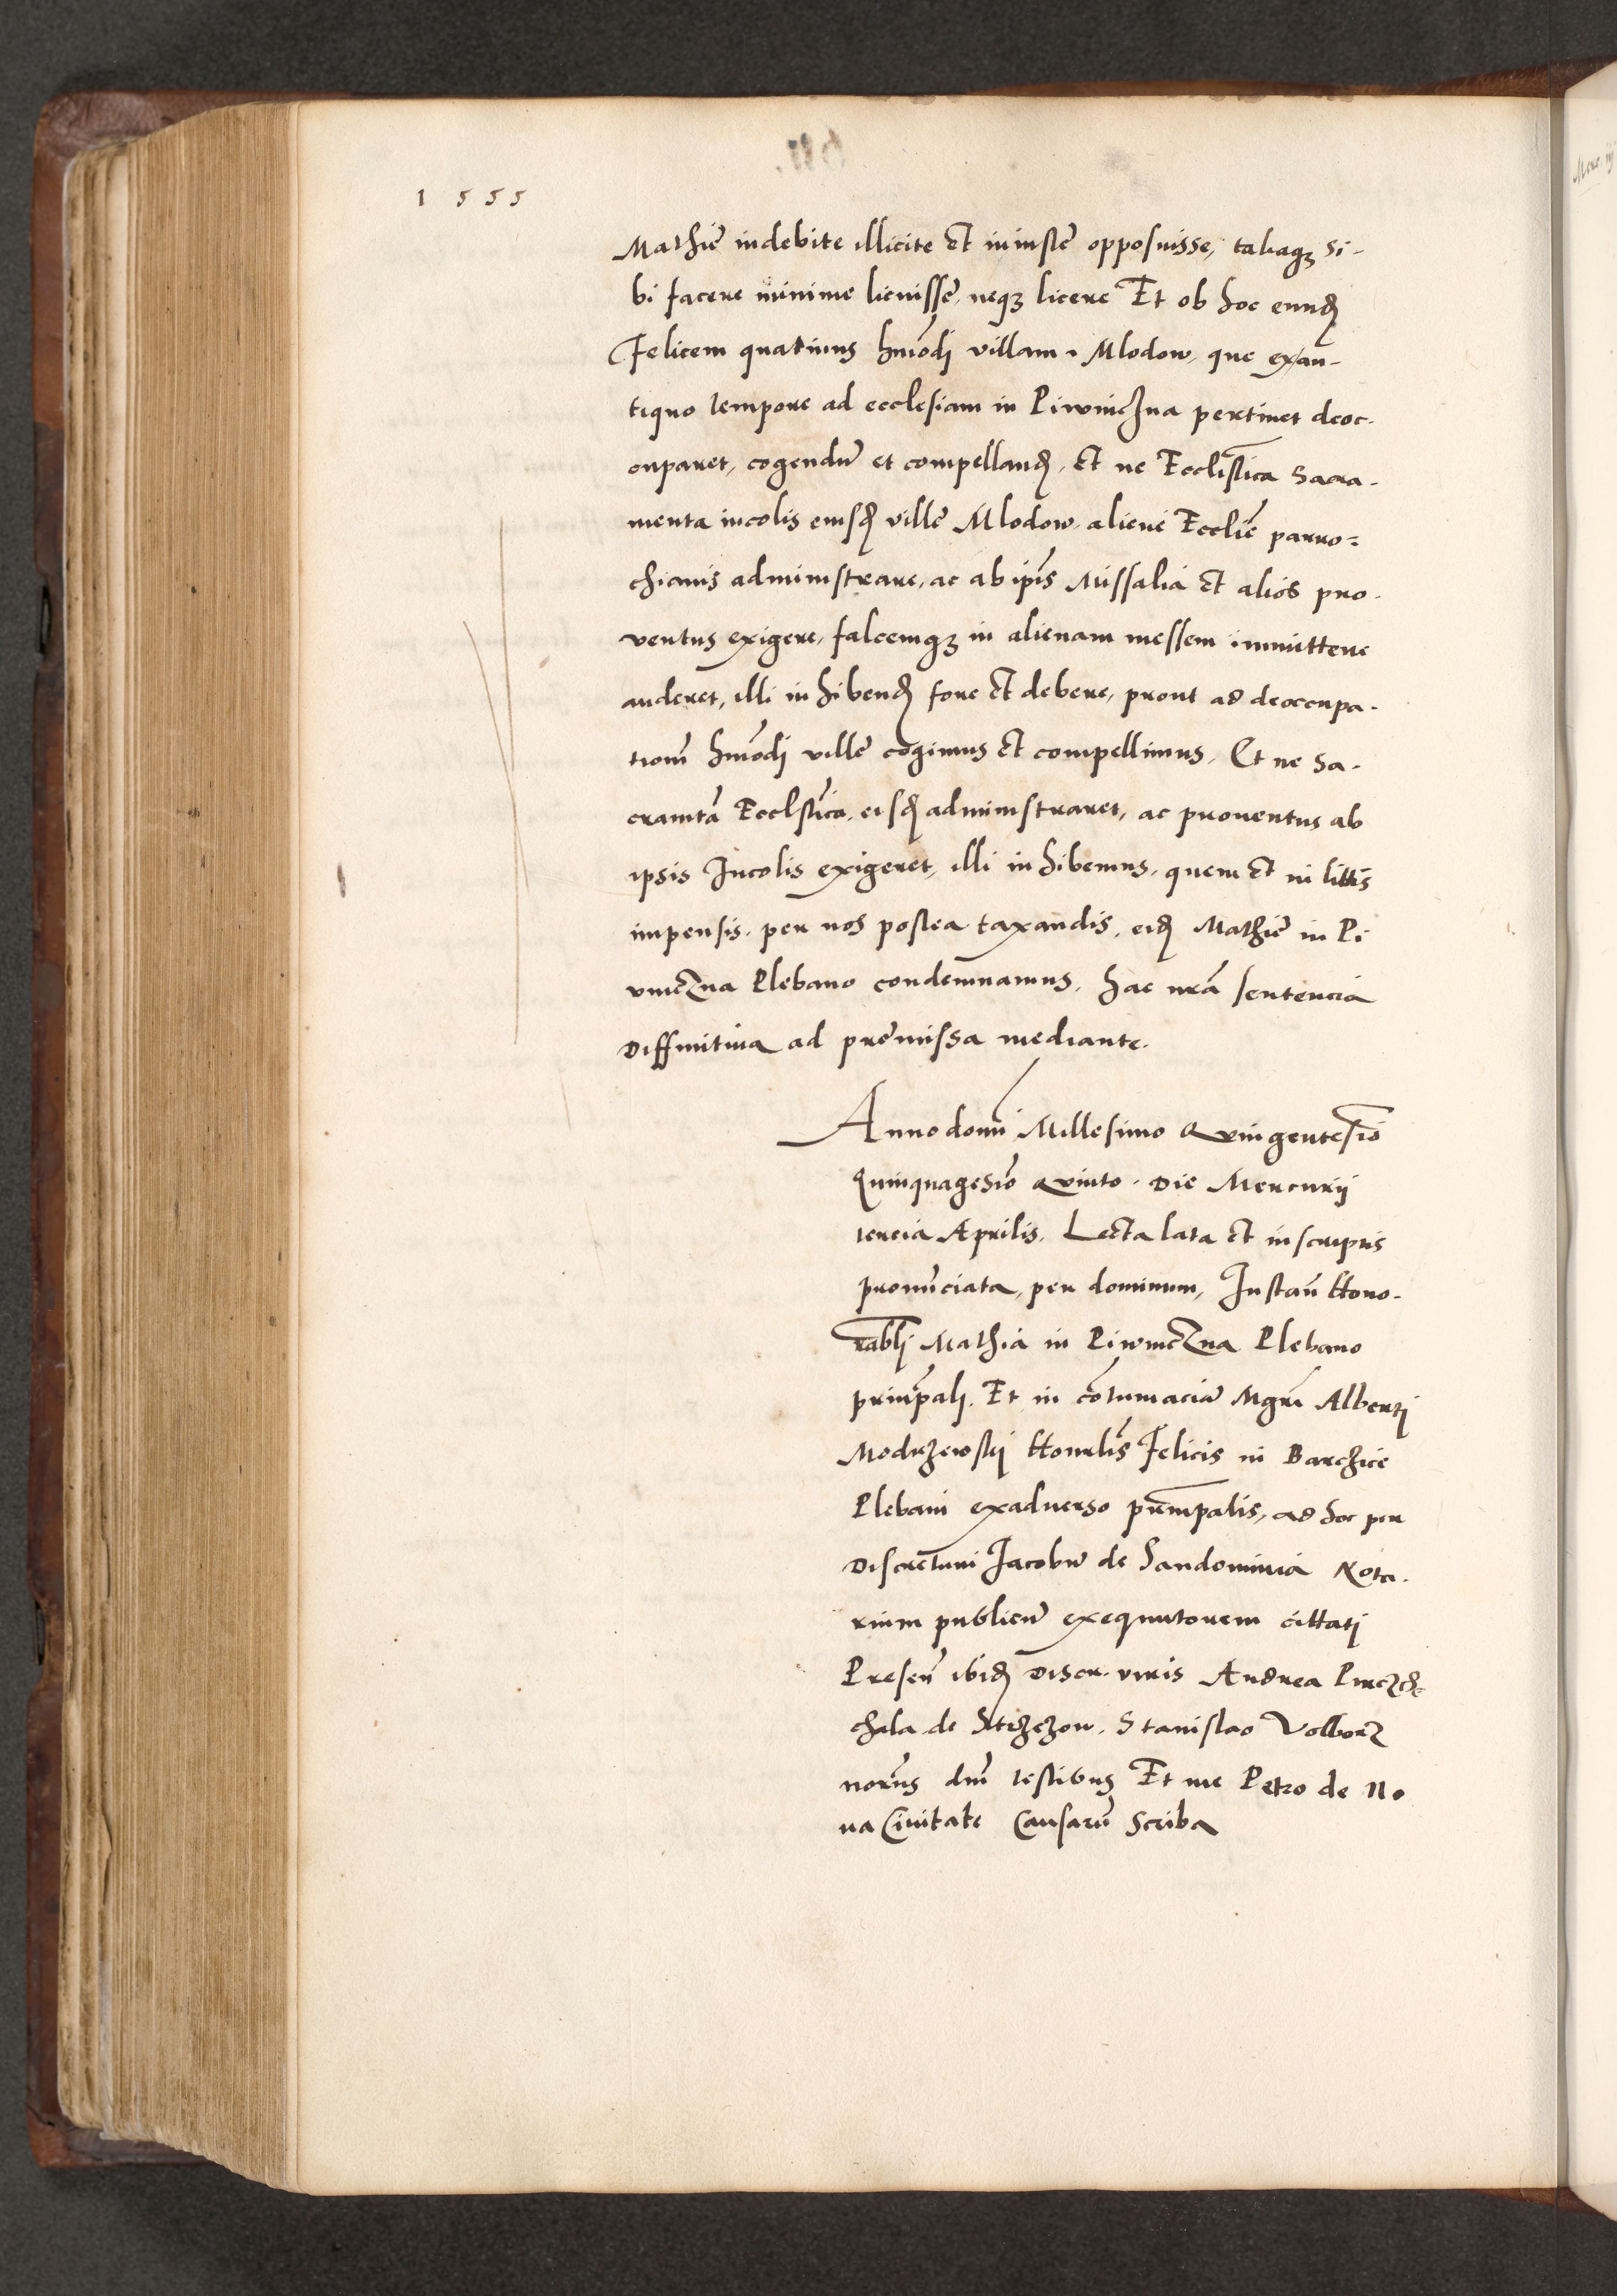 1555
Mathie indebite illicite et iniuste opposuisse, taliaqꝫ si-
bi facere minime licuisse, neqꝫ licere Et ob hoc eundꝫ
Felicem quatinus hmõdi villam Mlodow, que ex an-
tiquo tempore ad ecclesiam in Piwniczna pertinet deoc-
cuparet, cogendũ et compellandꝫ, et ne Ecclistica Sacra-
menta incolis eiusdꝫ ville Mlodow, aliene Ecclie parro-
chianis administrare, ac ab ipis Missalia et alios pro-
ventus exigere, falcemqꝫ in alienam messem immittere
auderet, illi inhibendꝫ fore et debere, prout ad deoccupa-
tionem hmõdi ville cogimus et compellimus, Et ne Sa-
cramta Ecclstica eisdꝫ administraret, ac prouentus ab
ipsis Incolis exigeret, illi inhibemus, quem et in littis
impensis per nos postea taxandis, eidꝫ Mathie in Pi
vniczna Plebano condemnamus, hac nrã sentencia
Diffinitiua ad premissa mediante.
Anno domi Millesimo Quingentesio
Quinquagesio Quinto Die Mercurij
tercia Aprilis, Lecta lata et in scriptis
pronũciata, per dominum, Instañ Hono-
rabli Mathia in Piwniczna Plebano
principali, Et in cõtumaciã Mgri Alberti
Modrzewskj Honrlis Felicis in Barczice
Plebani exaduerso principalis, ad hoc per
Discretum Jacobũ de Sandomiria Nota-
rium publicũ exequutorem cittatj
Preseñ ibidꝫ Discr. viris Andrea
chala de Strzezow, Stanislao Volborz
norijs dñi testibus Et me Petro de No
ua Ciuitate Causarũ Scriba